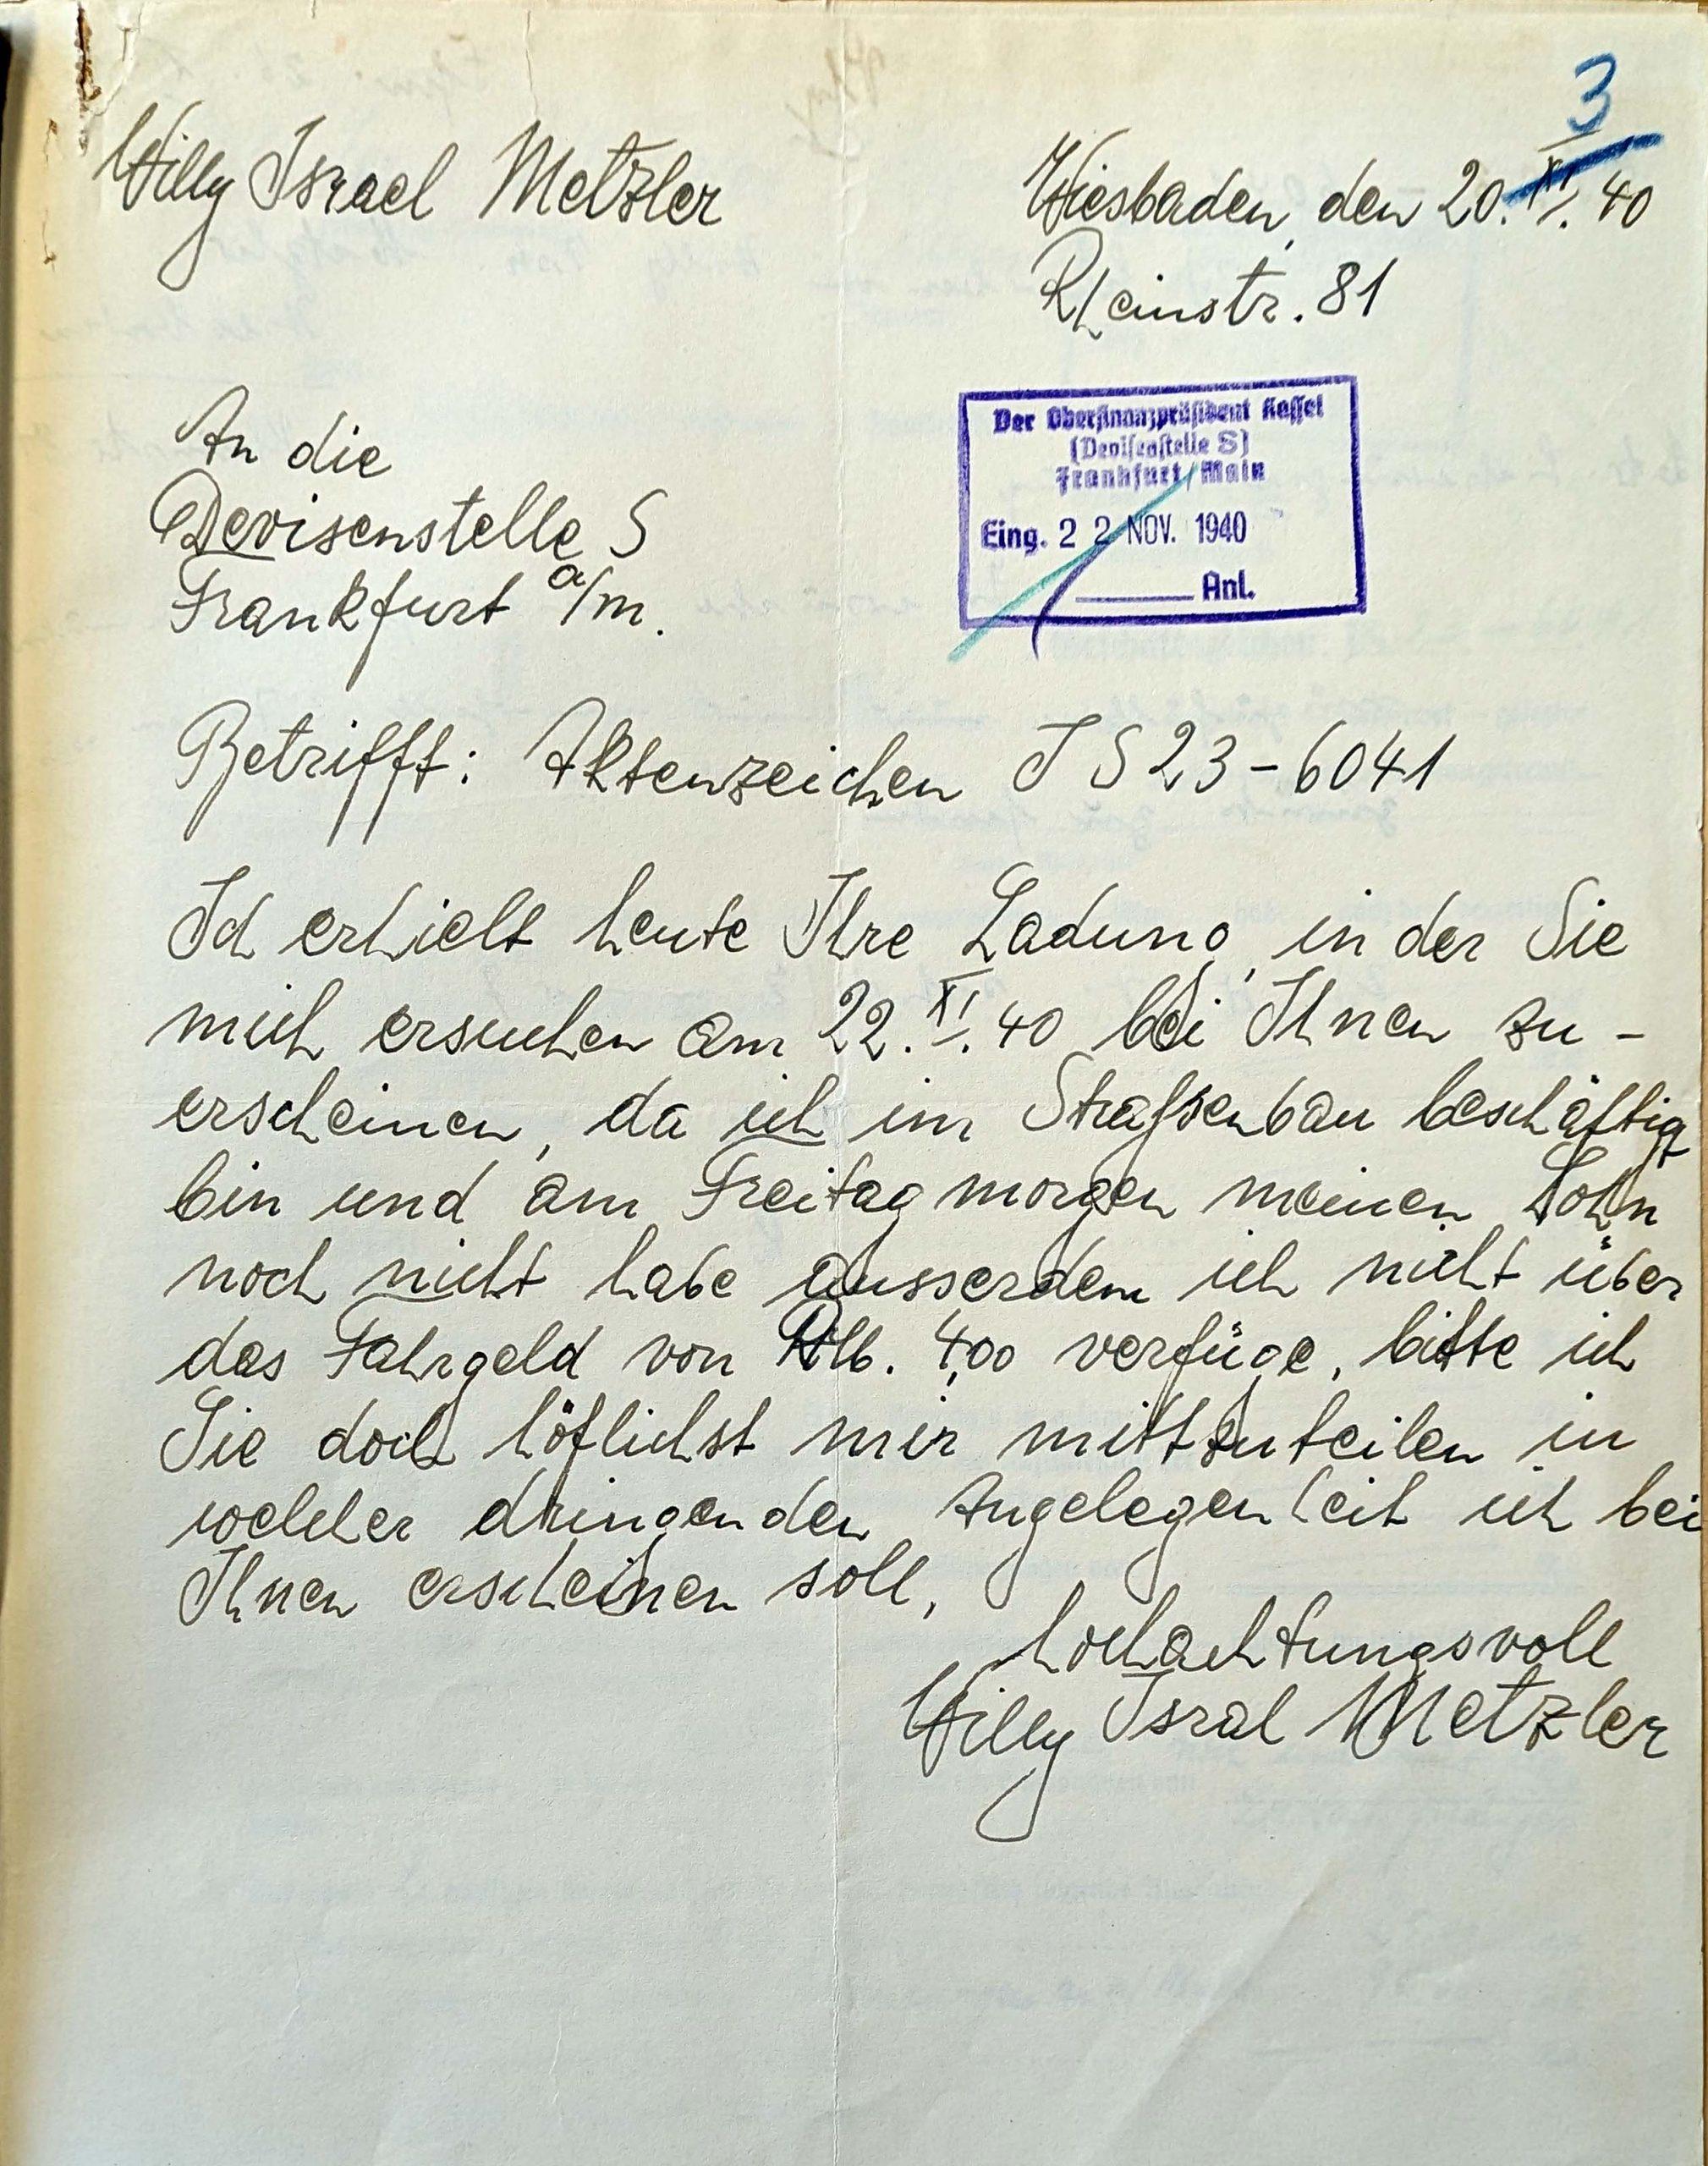 3
Willy Israel Metzler
Wiesbaden, den 20. XI. 40
Rheinstr. 81
Der Oberfinanzpräsident Kassel
(Devisenstelle S)
Frankfurt/Main
Eing. 22 NOV. 1940
Anl.
An die
Devisenstelle S
Frankfurt a/m.
Betrifft: Aktenzeichen J S 23-6041
Ich erhielt heute Ihre Ladung, in der Sie
mich ersuchen am 22. XI. 40 bei Ihnen zu-
erscheinen, da ich im Strafsenbau beschäftigt
bin und am Freitag morgen meinen Lohn
noch nicht habe ausserdem ich nicht über
das Fahrgeld von RM. 4,00 verfüge, bitte ich
Sie doch höflichst mir mittzuteilen in
welcher dringenden Angelegenheit ich bei
Ihnen erscheinen soll,
hochachtungsvoll
Willy Isral Metzler